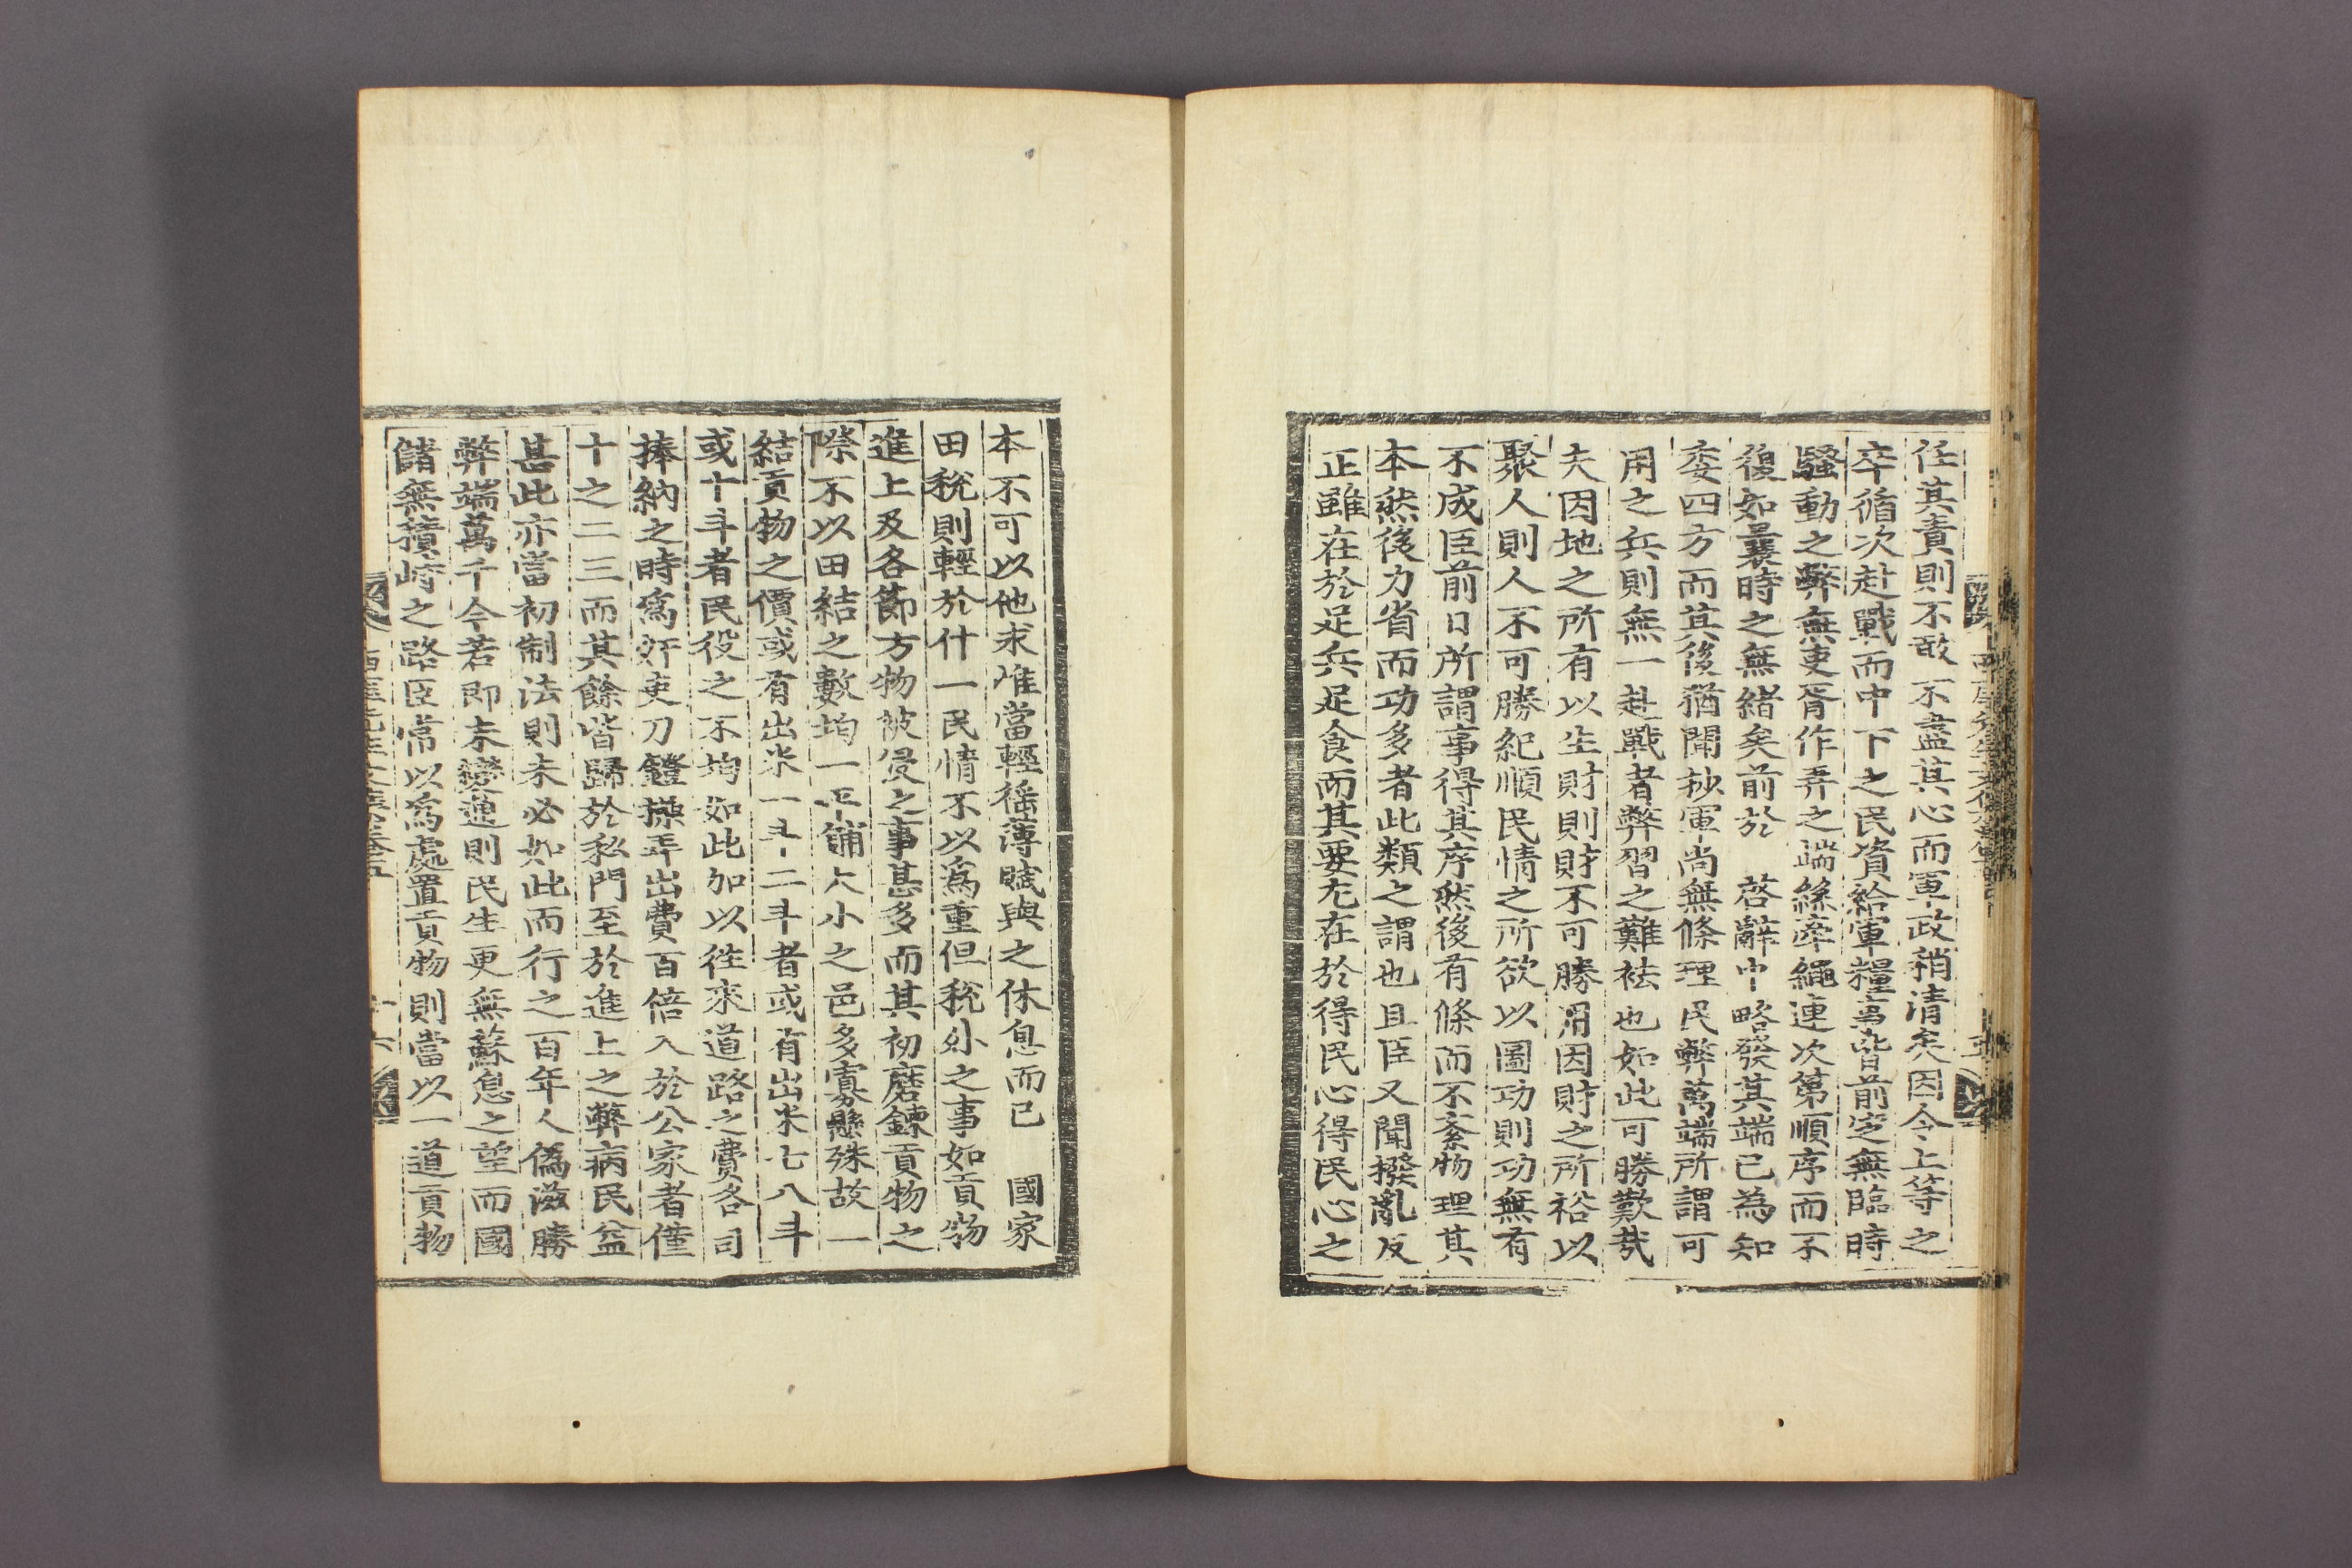 任其責則不敢不盡其心而軍政稍清矣因今上等之
卒循次赴戰而中下之民資給軍糧事皆前定無臨時
騷動之弊無吏胥作弄之端絲牽繩連次第順序而不
復如曩時之無緒矣前於 啓辭中略發其端已為知
委四方而其後猶聞抄軍尚無條理民弊萬端所謂可
用之兵則無一赴戰者弊習之難祛也如此可勝歎哉
夫因地之所有以生財則財不可勝用因財之所裕以
聚人則人不可勝紀順民情之所欲以圖功則功無有
不成臣前日所謂事得其序然後有條而不紊物理其
本然後力省而功多者此類之謂也且臣又聞撥亂反
正雖在於足兵足食而其要尤在於得民心得民心之
本不可以他求惟當輕徭薄賦與之休息而已 國家
田稅則輕於什一民情不以爲重但稅外之事如貢物
進上及各節方物侵之事甚多而其初磨鍊貢物之
際不以田結之數均一鋪大小之邑多寡懸殊故一
結貢物之價或有出米一斗二斗者或有出米七八斗
或十斗者民役之不均如此加以徃來道路之費各司
捧納之時爲奸吏刀蹬操弄出費百倍入於公家者僅
十之二三而其餘皆歸於私門至於進上之弊病民益
甚此亦當初制法則未必如此而行之百年人僞滋勝
弊端萬千今若卽未變通則民生更無蘇息之望而國
儲無積峙之路臣常以爲處置貢物則當以一道貢物
西厓先生文集卷五 十六